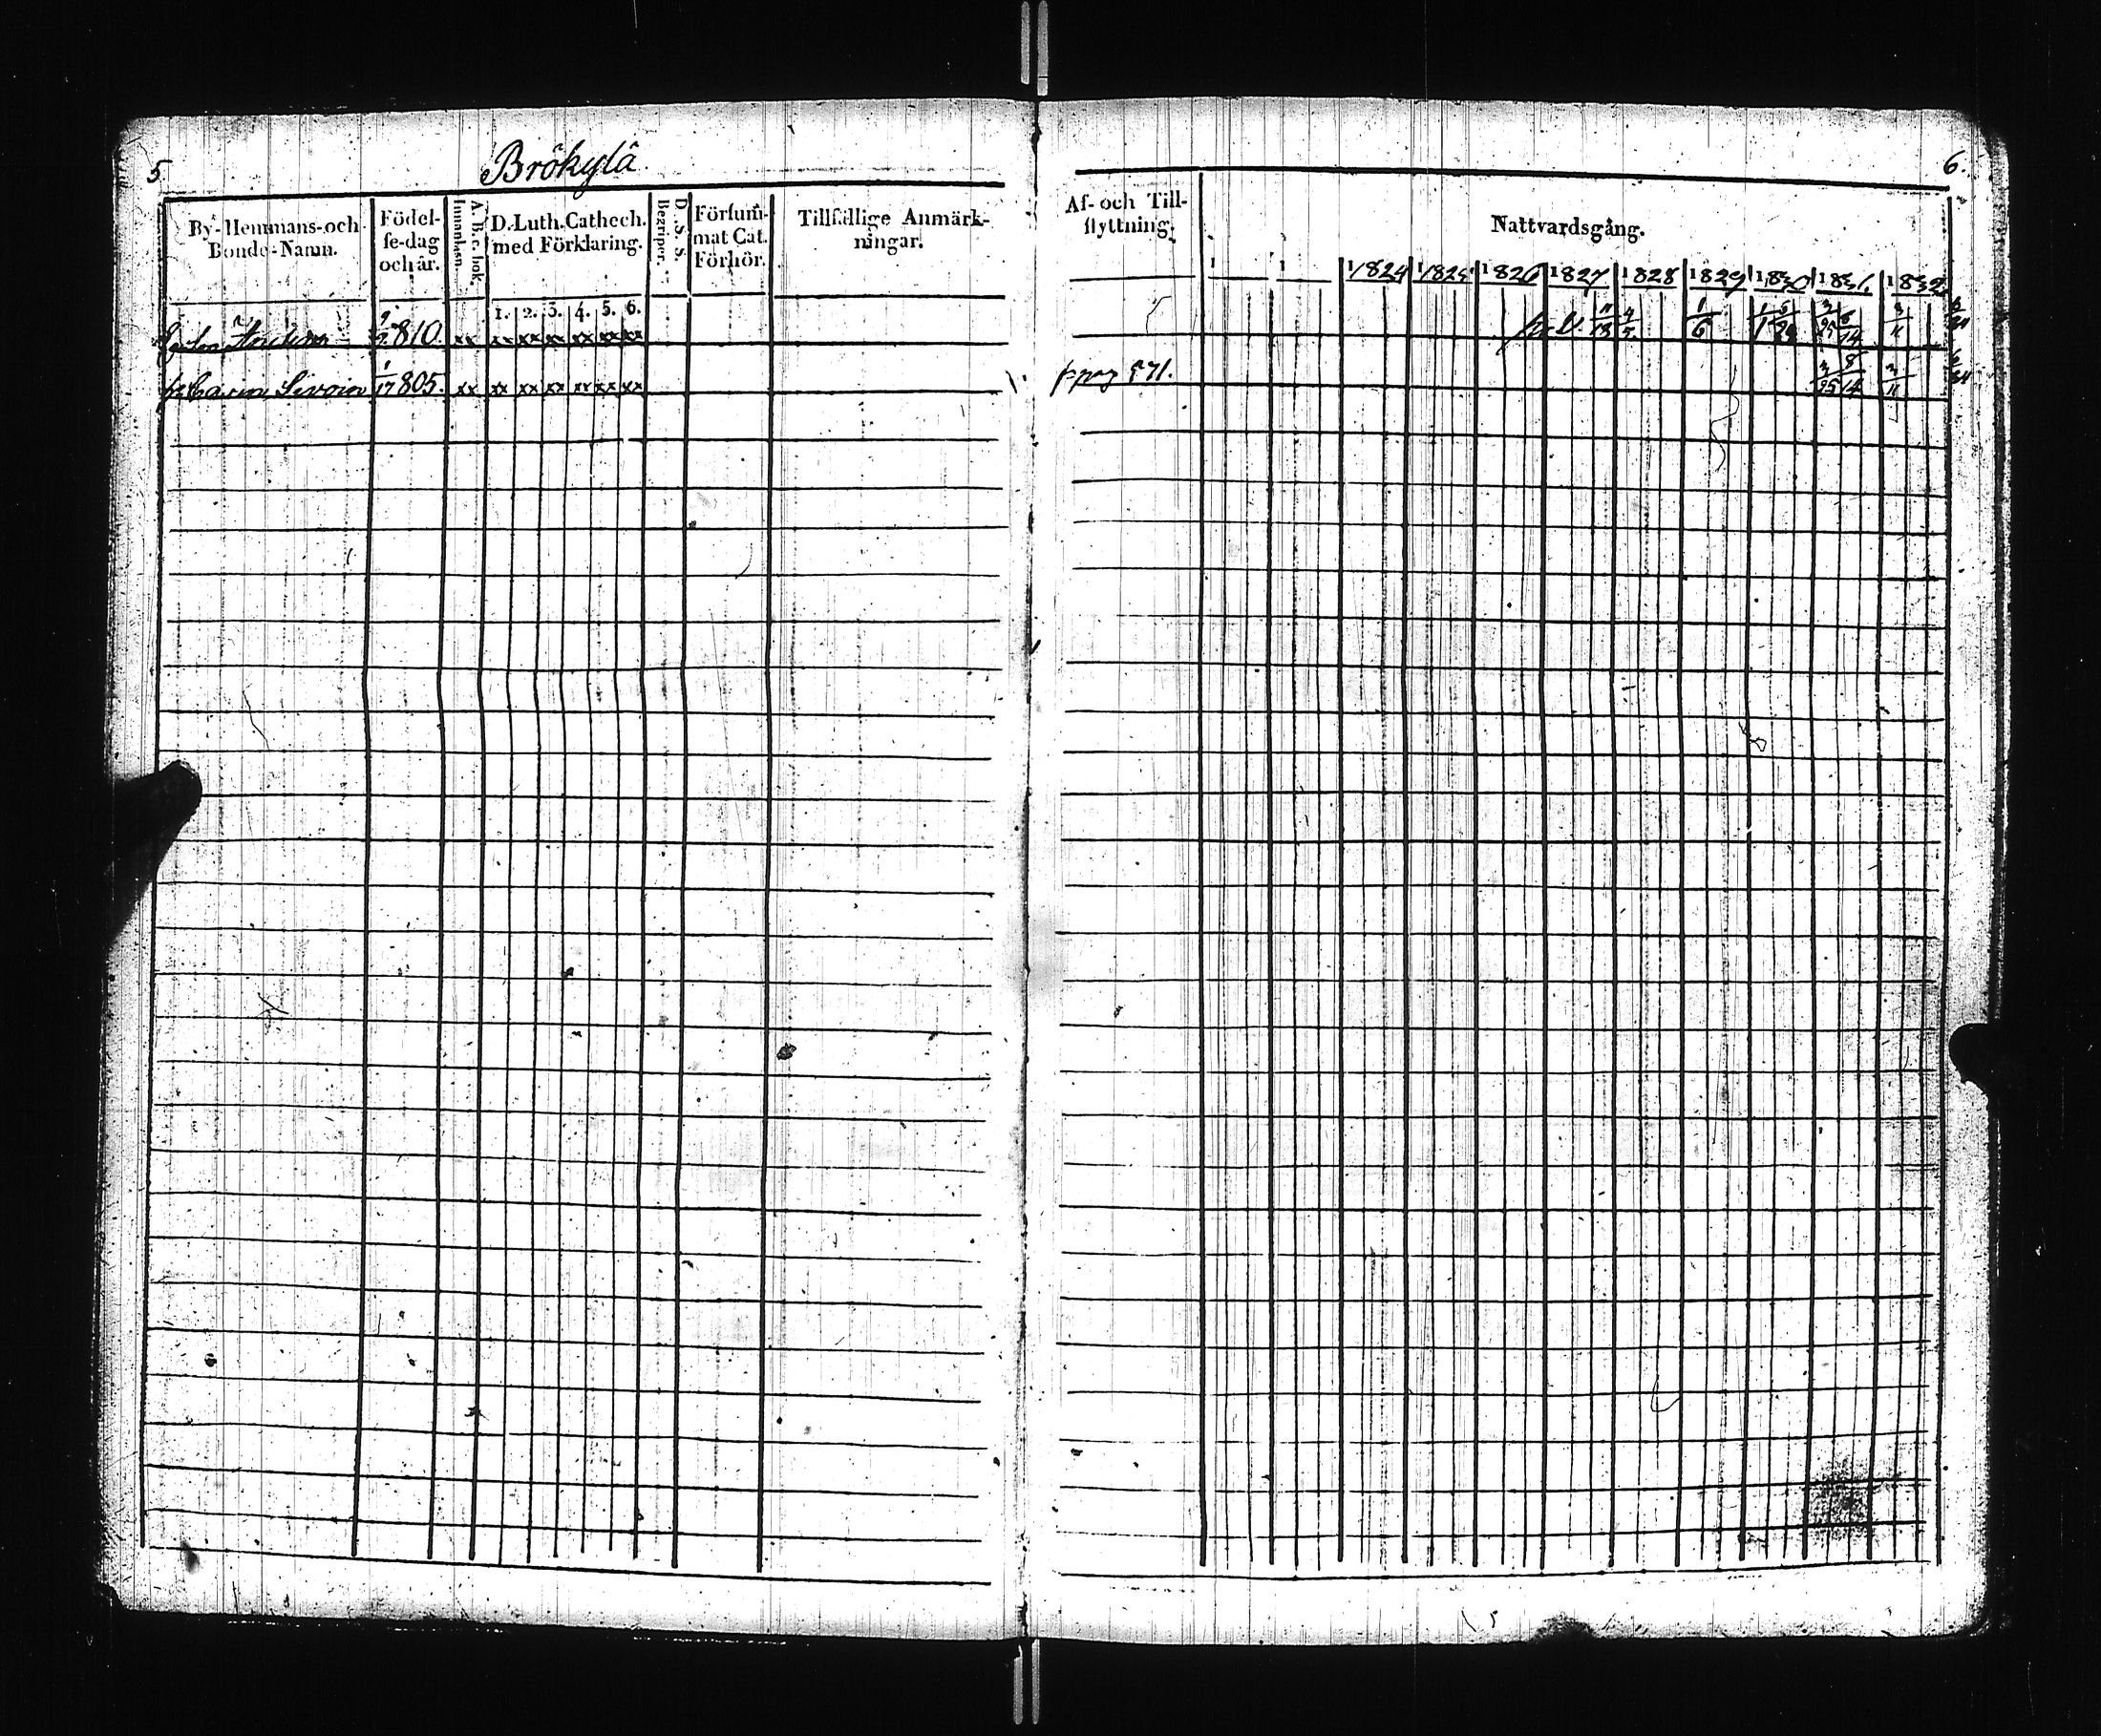 5.
Brökylä
By-Hemmans-och Bonde-Namn.
Födel-se-dag och år.
A. B. c. bok. Innanläsn.
D. Luth. Cathech. med Förklaring.
1. 2. 3. 4. 5. 6.
D. S. S. Begriper.
Försum-mat Cat. Förhör.
Tillfällige Anmärk-ningar.
810. xx xx xx xx xx xx xx
Carin Sivoin 1/17 805. xx xx xx xx xx xx xx
6.
Af- och Till-flyttning.
Nattvardsgång.
1 1 1824 1825 1826 1827 1828 1829 1830 1831 1832
11/13 4/5 1/6 3/25 3/11
p pag 571. 3/25 8/14 3/11